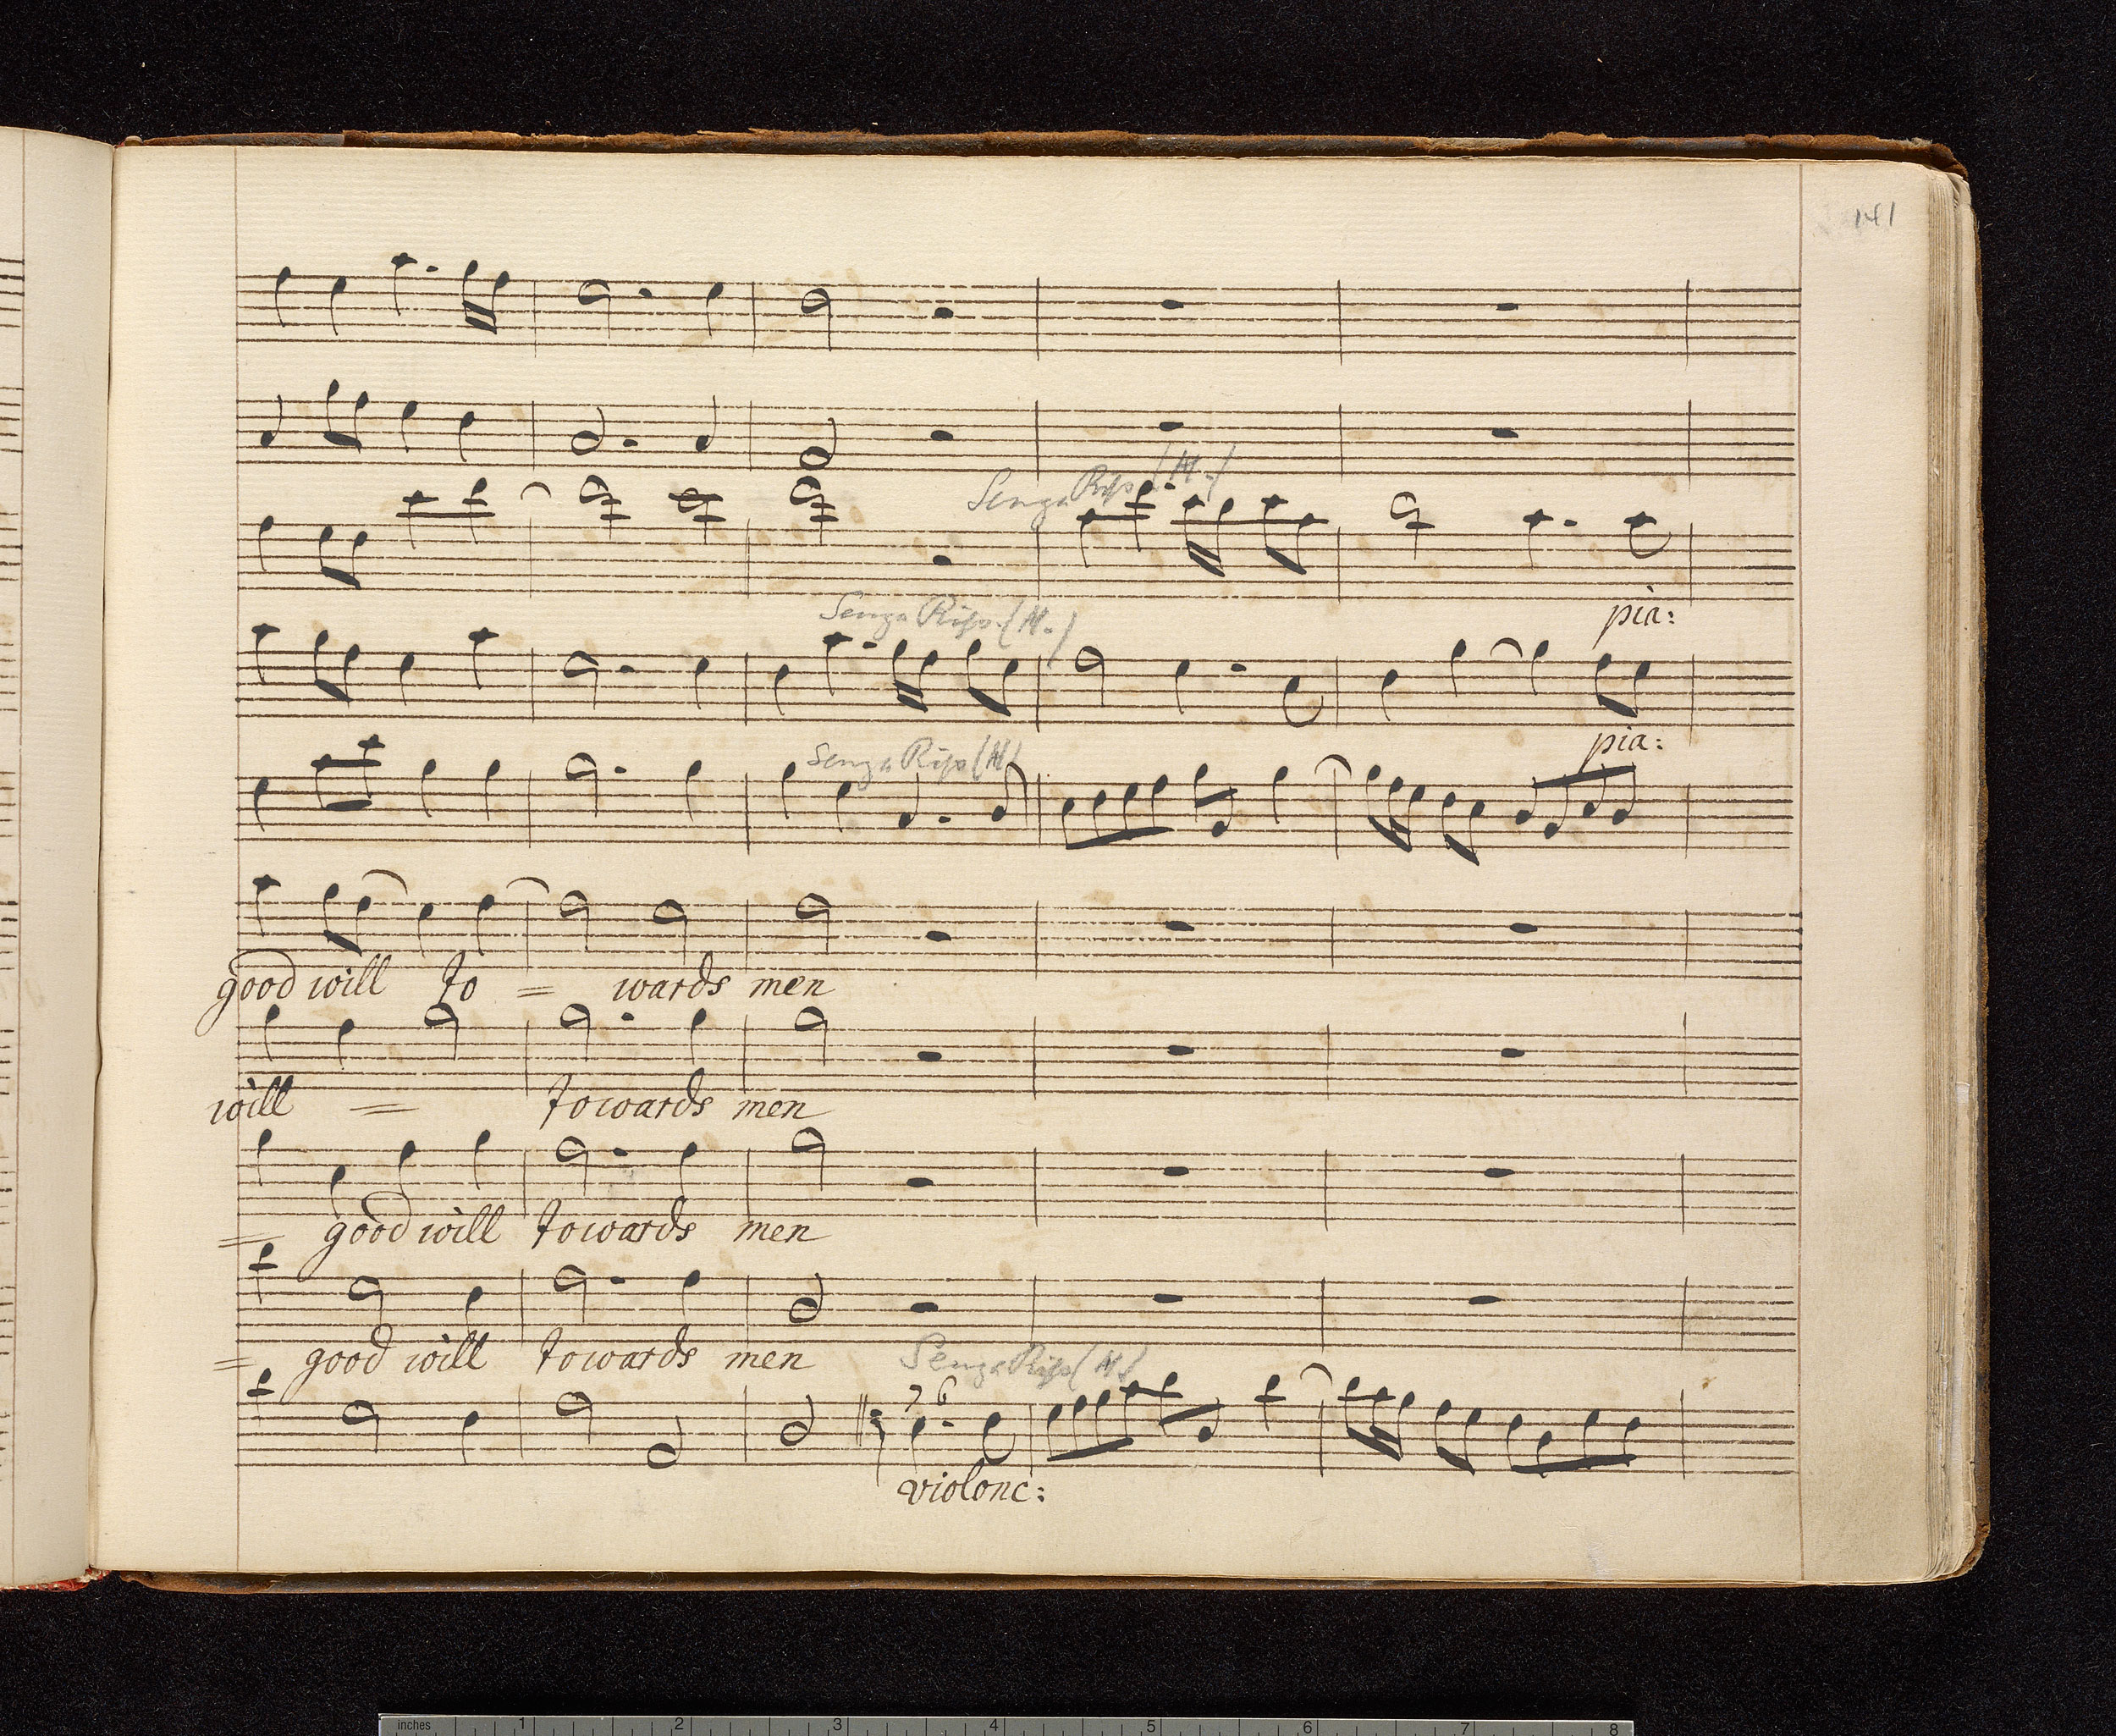 141
Senza Rip. (H.)
pia:
Senza Rip. (H.)
pia:
Senza Rip (H)
good will to = wards men
will = towards men
= good will towards men
= good will towards men
Senza Rip (H.)
7 6
violonc:
inches 1 2 3 4 5 6 7 8